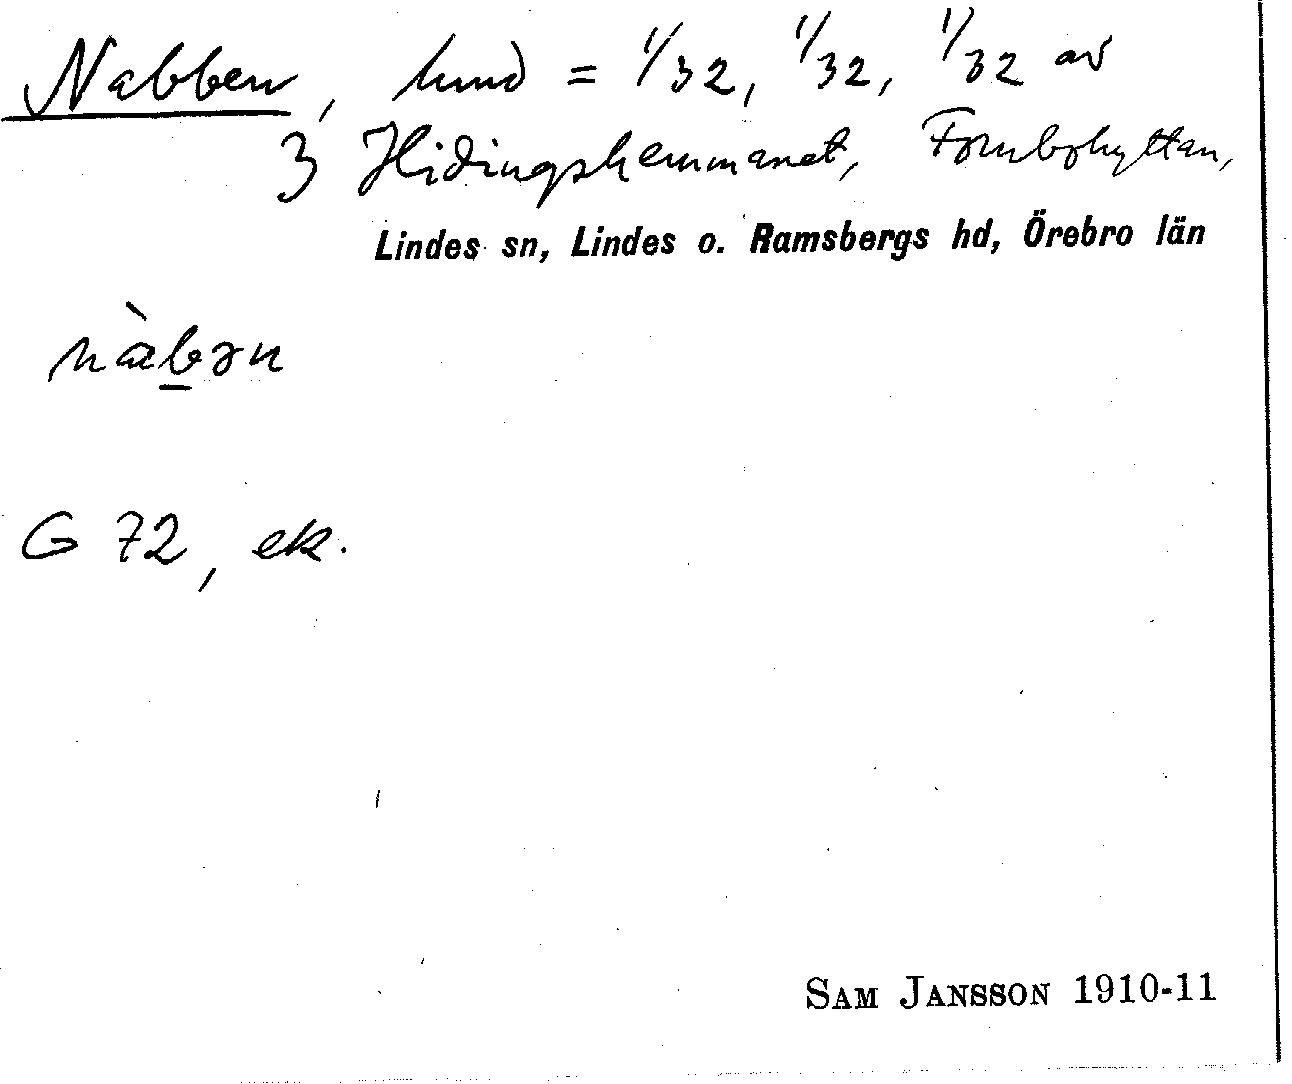 Nabben, lund = 1/32, 1/32, 1/32 av
3 Hidingshemmanet, Fornbohyttan,
Lindes sn, Lindes o. Ramsbergs hd, Örebro län
nàbən
G 72, ek.
SAM JANSSON 1910-11